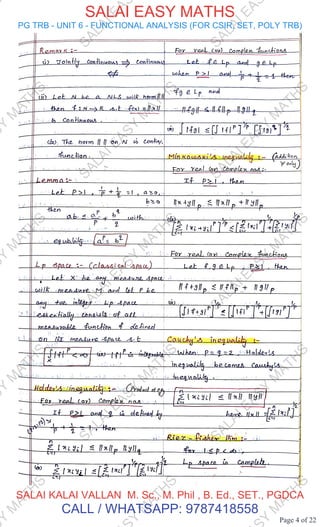 SALAI EASY MATHS
PG TRB - UNIT 6 - FUNCTIONAL ANALYSIS (FOR CSIR, SET, POLY TRB)
Remark :-
i) Jointly continuous ⇒ continuous
⇍
(ii) Let N be a NLS with norm ‖ ‖
then f: N→R s.t f(x) = ‖x‖
is continuous.
(or) The norm ‖ ‖ on N is contin.
function.
Lemma :-
Let p>1, 1/p + 1/q = 1, a≥0,
b≥0
then
ab ≤ a^p/p + b^q/q with
equality a^p = b^q
Lp space :- (classical space)
Let X be any measure space
with measure M and let P be
any +ve integer Lp space
essentially consists of all
measurable function f defined
on the measure space s.t
∫|f|^p < ∞ (or) |f|^p is integrable
Holder's inequality :- (Product
For real (or) complex nos.
If p>1 and q is defined by
1/p + 1/q = 1, then
Σ |xi yi| ≤ ‖x‖p ‖y‖q
(or) Σ |xi yi| ≤ [Σ|xi|^p]^1/p [Σ|yi|^q]^1/q
For real (or) Complex functions
Let f ∈ Lp and g ∈ Lq
when p>1 and 1/p + 1/q = 1 then
fg ∈ Lp and
‖fg‖ ≤ ‖f‖p ‖g‖q
(or) ∫|fg| ≤ [∫|f|^p]^1/p [∫|g|^q]^1/q
Minkowski's inequality :- (addition
For real (or) complex nos :-
If p≥1, then
‖x+y‖p ≤ ‖x‖p + ‖y‖p
(or) [Σ|xi+yi|^p]^1/p ≤ [Σ|xi|^p]^1/p + [Σ|yi|^p]^1/p
For real (or) complex functions
Let f, g ∈ Lp p≥1, then
‖f+g‖p ≤ ‖f‖p + ‖g‖p
(or) [∫|f+g|^p]^1/p ≤ [∫|f|^p]^1/p + [∫|g|^p]^1/p
Cauchy's inequality :-
When p=q=2, Holder's
inequality becomes Cauchy's
inequality.
Σ|xi yi| ≤ ‖x‖ ‖y‖
here ‖x‖ = [Σ|xi|^2]^1/2
Riez - fisher thm :-
for 1≤p<∞,
Lp space is complete.
Page 4 of 22
SALAI KALAI VALLAN M. Sc., M. Phil , B. Ed., SET., PGDCA
CALL / WHATSAPP: 9787418558